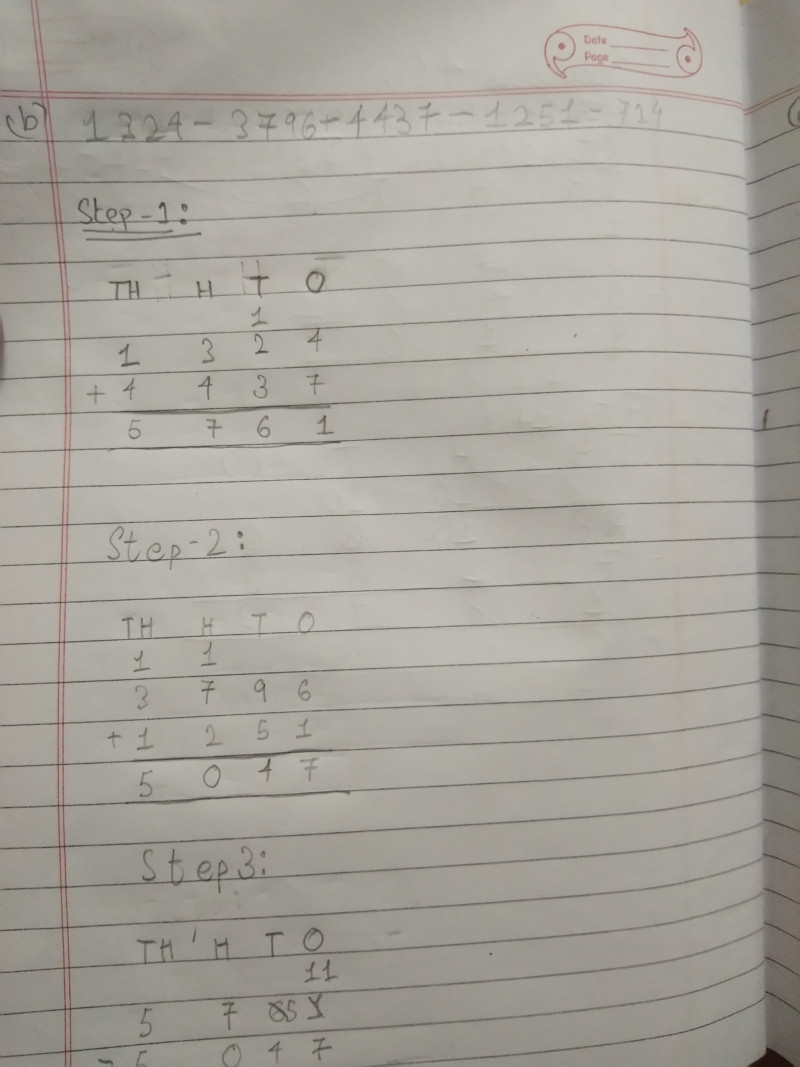 Date
Page
(b) 1324 - 3796 + 4437 - 1251 = 714
Step-1:
TH H T O
1
1 3 2 4
+ 4 4 3 7
5 7 6 1
Step-2:
TH H T O
1 1
3 7 9 6
+ 1 2 5 1
5 0 4 7
Step 3:
TH H T O
11
5 7 6 5 1
- 5 0 4 7